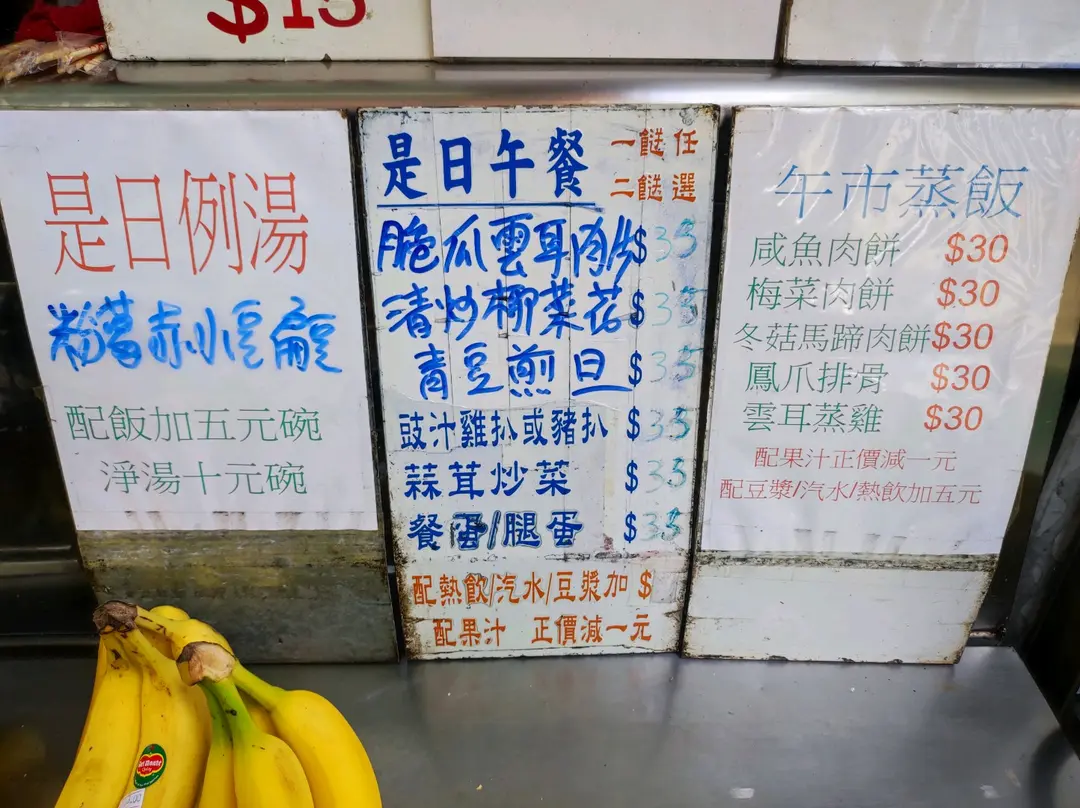 $15
是日例湯
粉葛赤小豆扁豆
配飯加五元碗
淨湯十元碗
是日午餐
一餸任
二餸選
脆瓜雲耳肉片$35
清炒椰菜花$35
青豆煎旦$35
豉汁雞扒或豬扒$35
蒜茸炒菜$35
餐蛋/腿蛋$35
配熱飲/汽水/豆漿加$
配果汁 正價減一元
午市蒸飯
咸魚肉餅 $30
梅菜肉餅 $30
冬菇馬蹄肉餅$30
鳳爪排骨 $30
雲耳蒸雞 $30
配果汁正價減一元
配豆漿/汽水/熱飲加五元
Del Monte